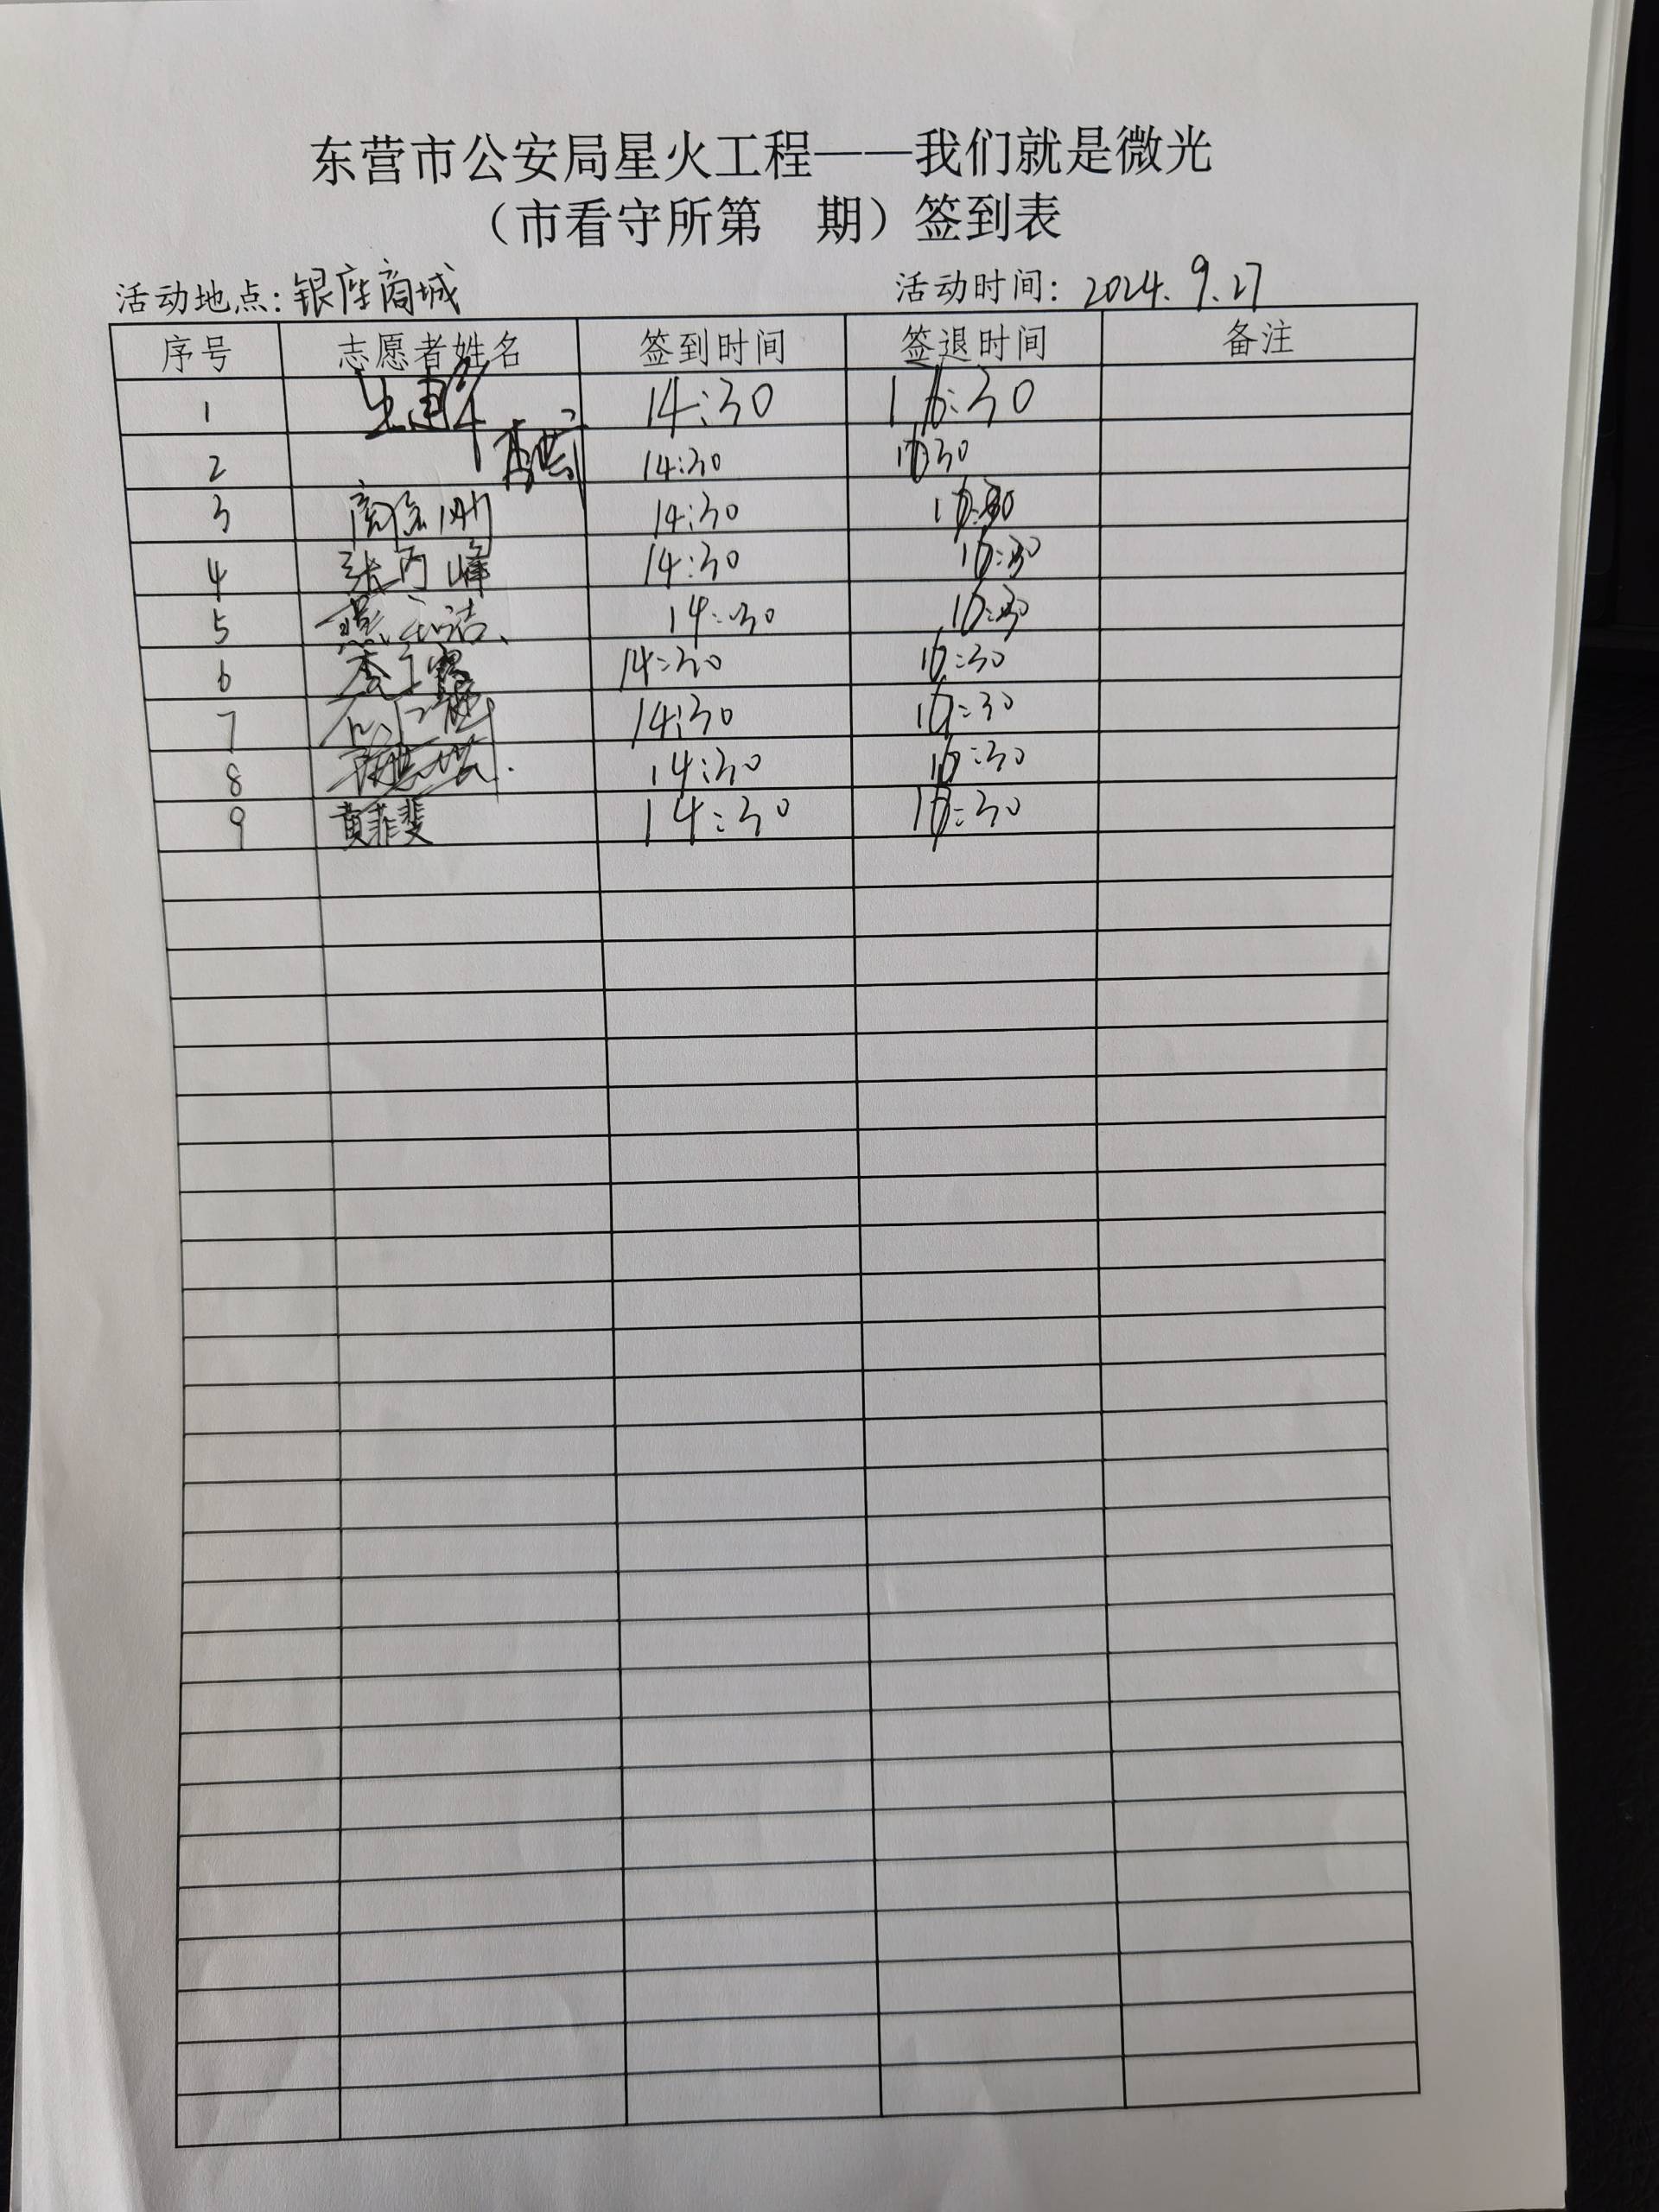 东营市公安局星火工程——我们就是微光
（市看守所第 期）签到表
活动地点：银座商城 活动时间：2024.9.27
序号 志愿者姓名 签到时间 签退时间 备注
1 14:30 16:30
2 14:30 16:30
3 14:30 16:30
4 张丙峰 14:30 16:30
5 14:30 16:30
6 14:30 16:30
7 14:30 16:30
8 14:30 16:30
9 黄菲斐 14:30 16:30